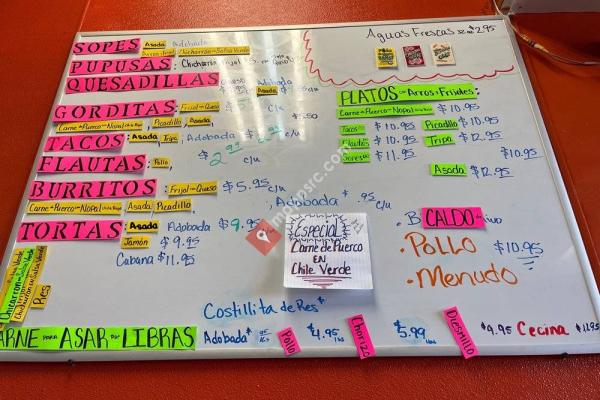 Aguas Frescas 32 oz $2.95
SOPES Asada Adobada
Chicharron en Salsa Verde
PUPUSAS: Chicharron Frijol Queso
QUESADILLAS Queso Adobada
Asada
GORDITAS: Frijol con Queso $5 c/u
Carne de Puerco con Nopal Picadillo, Asada $5.50
TACOS: Asada Tripa, Adobada $2.95 c/u
FLAUTAS: Pollo, c/u
BURRITOS Frijol con Queso $5.95 c/u
Carne de Puerco con Nopal Asada Picadillo, Adobada $ .95 c/u
TORTAS Asada Adobada $9.95
Jamón $9.95
Cubana $11.95
Chicharron en Salsa Verde
Res
PLATOS con Arros y Frijoles
Carne de Puerco con Nopal $10.95
Tacos $10.95 Picadillo $10.95
Flautas $10.95 Tripa $12.95
$11.95 $10.95
Asada $12.95
CALDO
• Pollo $10.95
• Menudo
Especial
Carne de Puerco
EN
Chile Verde
Costillita de Res
CARNE para ASAR por LIBRAS Adobada Pollo $4.95 Lbs Chorizo $5.99 Lbs Diesmillo $9.95 Cecina $11.95
mapsrc.com